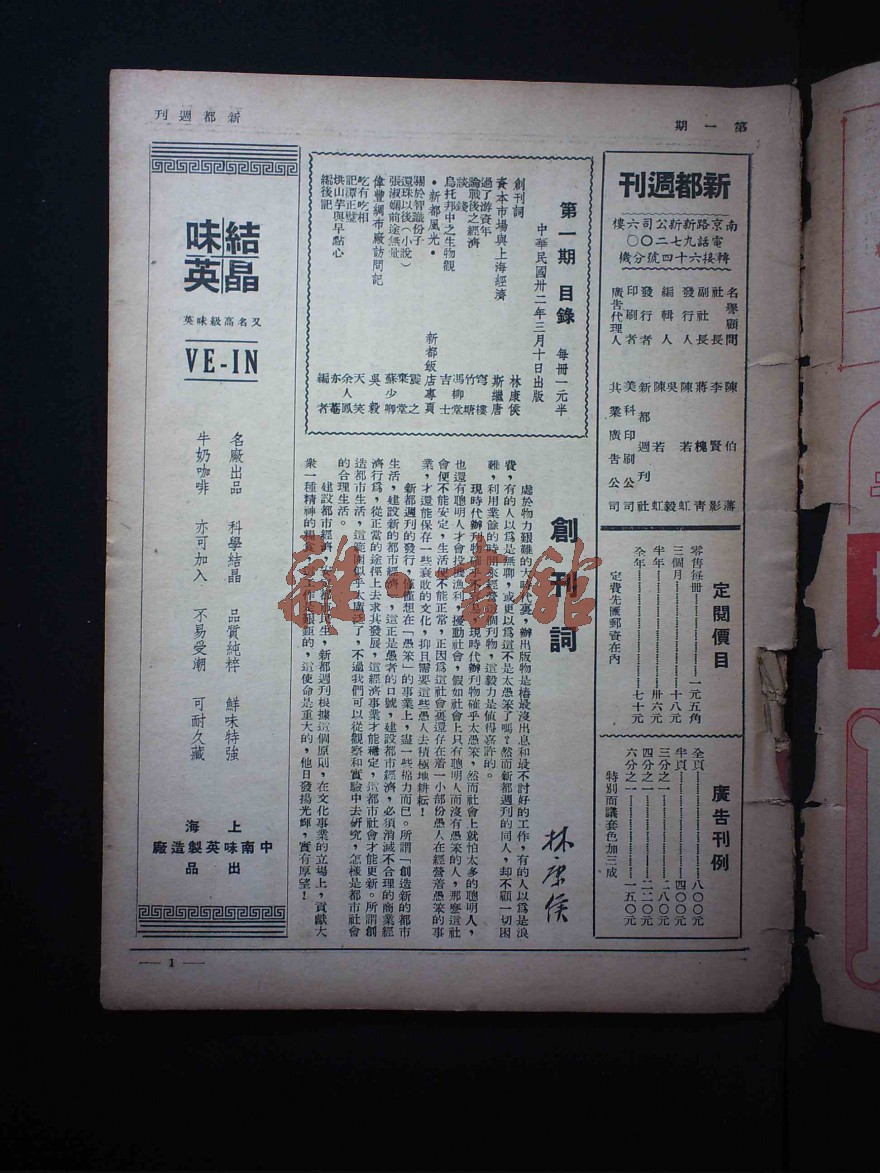 第一期
新都週刊
新都週刊
南京路新新公司六樓
電話九七二〇〇
轉接六十四號分機
名譽顧問 陳伯藩
社長 李賢影
副社長 蔣槐青
發行人 陳若虹
編輯人 吳毅
發行者 新都週刊社
印刷者 美科印刷公司
廣告代理人 共業廣告公司
定閱價目
零售每冊 一元五角
三個月 十八元
半年 卅六元
全年 七十元
定費先匯郵資在內
廣告刊例
全頁 八〇〇元
半頁 四〇〇元
三分之一 二八〇元
四分之一 二二〇元
六分之一 一五〇元
特別面議套色加三成
第一期 目錄 每冊一元半
中華民國卅二年三月十日出版
創刊詞 林康侯
資本市場與上海經濟 斯繼唐
過了游資年 穹樓
論戰後之經濟 竹塘
談錢 馮柳堂
烏托邦中之生物觀 吉士
•新都風光• 新都飯店專頁
關於智識份子 震之
還珠以後(小說) 棄堂
張淑嫻前途無量 蘇少卿
偉豐綢布廠訪問記 吳毅
吃有吃相 天笑
記譚正璧 余人鳳
烘山芋與早點心 亦菴
編後記 編者
創刊詞
林康侯
處於物力艱難的大時代裏,辦出版物是樁最沒出息和最不討好的工作,有的人以爲是浪
費,有的人以爲是無聊,或更以爲這不是太愚笨了嗎?然而新都週刊的同人,却不顧一切困
難,利用業餘的時間來經營這個刊物,這毅力是値得嘉許的。
現時代辦刊物確乎不易,現時代辦刊物確乎太愚笨,然而社會上就怕太多的聰明人,
也還有聰明人才會投機漁利,擾動社會,假如社會上只有聰明人而沒有愚笨的人,那麼這社
會便不能安定,生活便不能正常,正因爲社會裏還存在着一小部份愚人在經營着愚笨的事
業,才還能保存一些衰敗的文化,抑且需要這些愚人去積極地耕耘!
新都週刊的發行,僅僅想在「愚笨」的事業上,盡一些棉力而已。所謂「創造新的都市
生活,建設新的都市經濟」,這正是愚者的口號,建設都市經濟,必須消滅不合理的商業經
濟行爲,從正當的途徑上去求其發展,這經濟事業才能穩定,這都市社會才能更新。所謂創
造都市生活,這範圍似乎太廣泛了,不過我們可以從觀察和實驗中去研究,怎樣是都市社會
的合理生活。
建設都市經濟,安定都市民生,新都週刊根據這個原則,在文化事業的立場上,貢獻大
衆一種精神的糧食,工作是艱鉅的,這使命是重大的,他日發揚光輝,實有厚望!
結晶味英
又名高級味英
VE-IN
名廠出品 科學結晶 品質純粹 鮮味特強
牛奶咖啡 亦可加入 不易受潮 可耐久藏
上海
中南味英製造廠
出品
— 1 —
雜·書館